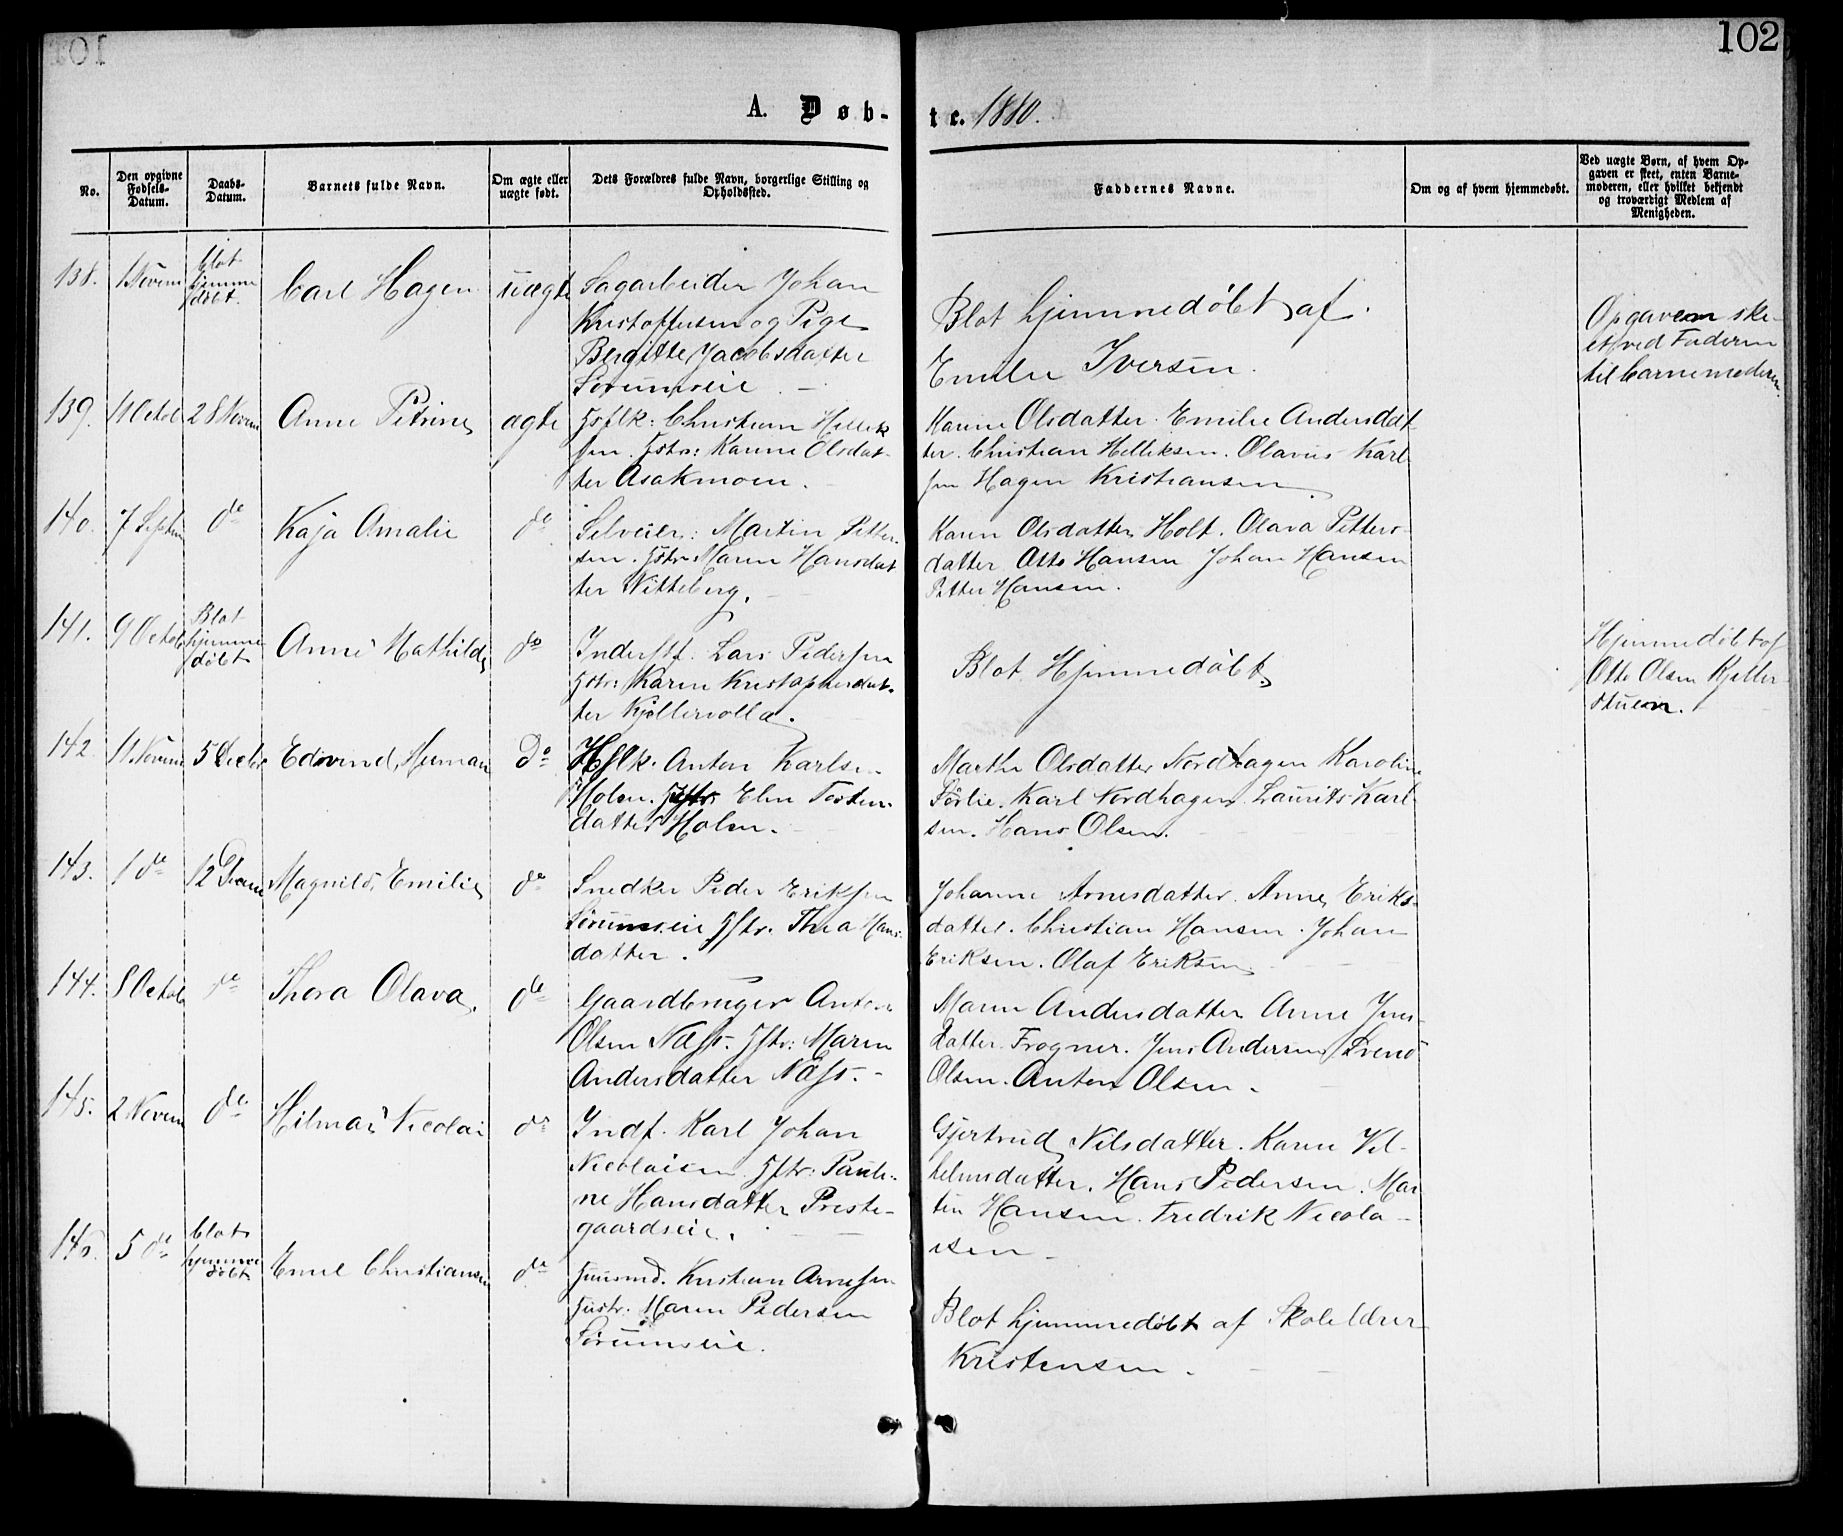 102
A. Døb-
te. 1880.
No.
Den opgivne Fødsels-Datum.
Daabs-Datum.
Barnets fulde Navn.
Om ægte eller uægte født.
Dets Forældres fulde Navn, borgerlige Stilling og Opholdssted.
Faddernes Navne.
Om og af hvem hjemmedøbt.
Ved uægte Børn, af hvem Opgaven er skeet, enten Barnemoderen, eller hvilket bekjendt og troværdigt Medlem af Menigheden.
138. 1 Novem blot hjemme døbt. Carl Hagen uægte
Sagarbeider Johan
Kristoffersen og Pige
Bergitte Jacobsdatter
Sørumseie
Blot hjemmedøbt af
Emilie Iversen.
Opgaven ske-
et ved Faderen
til barnemoderen
139. 11 Octob 28 Novem Anne Petrine ægte
Gsflk: Christian Hellik
sen. Gstr: Karine Olsdat-
ter Asakmoen.
Karine Olsdatter. Emilie Andersdat
ter. Christian Helliksen. Olavus Karl
sen Hagen Kristiansen
140. 7 Septem do Kaja Amalie do
Selveier: Martin Petter-
sen. Gstr Maren Hansdat
ter Witteberg.
Karen Olsdatter Holt. Olava Petters-
datter Otto Hansen Johan Hansen
Petter Hansen.
141. 9 Octob Blot hjemme døbt Anne Mathilde do
Inderst. Lars Pedersen
Gstr: Karen Kristophersdat-
ter Kjellervolla.
Blot Hjemmedøbt.
Hjemmedøbt af
Otto Olsen Kjeller-
stuen.
142. 11 Novem 5 Decbr Edvind Herman do
Hflk. Anton Karlsen
Holen. Gstr: Elen Torsten-
datter Holen.
Marthe Olsdatter Nordhagen Karoline
Sørlie. Karl Nordhagen. Laurits Karl-
sen. Hans Olsen.
143. 1 do 12 Decem Magnild Emilie do
Snedker Peder Eriksen
Sørumseie Gstr. Thea Hans-
datter.
Johanne Arnesdatter. Anne Eriks-
datter. Christian Hansen. Johan
Eriksen. Olaf Eriksen
144. 8 Octob do Thora Olava. do
Gaardbruger Anton
Olsen Næss. Gstr: Maren
Andersdatter Næss.
Maren Andersdatter Anne Jens-
datter Frogner. Jens Andersen Svend
Olsen. Anton Olsen.
145. 2 Novem do Hilmar Nicolai do
Indf. Karl Johan
Nicolaisen. Gstr: Pauli-
ne Hansdatter Preste-
gaardseie.
Gjertrud Nilsdatter. Karen Vil-
helmsdatter. Hans Pedersen. Mar
tin Hansen. Fredrik Nicola-
isen
146. 5 do blot hjemme døbt Emil Christiansen do
Husmd. Kristian Arnesen
Hustr. Maren Pedersen
Sørumseie.
Blot hjemmedøbt af Skoleldrer
Kristensen.